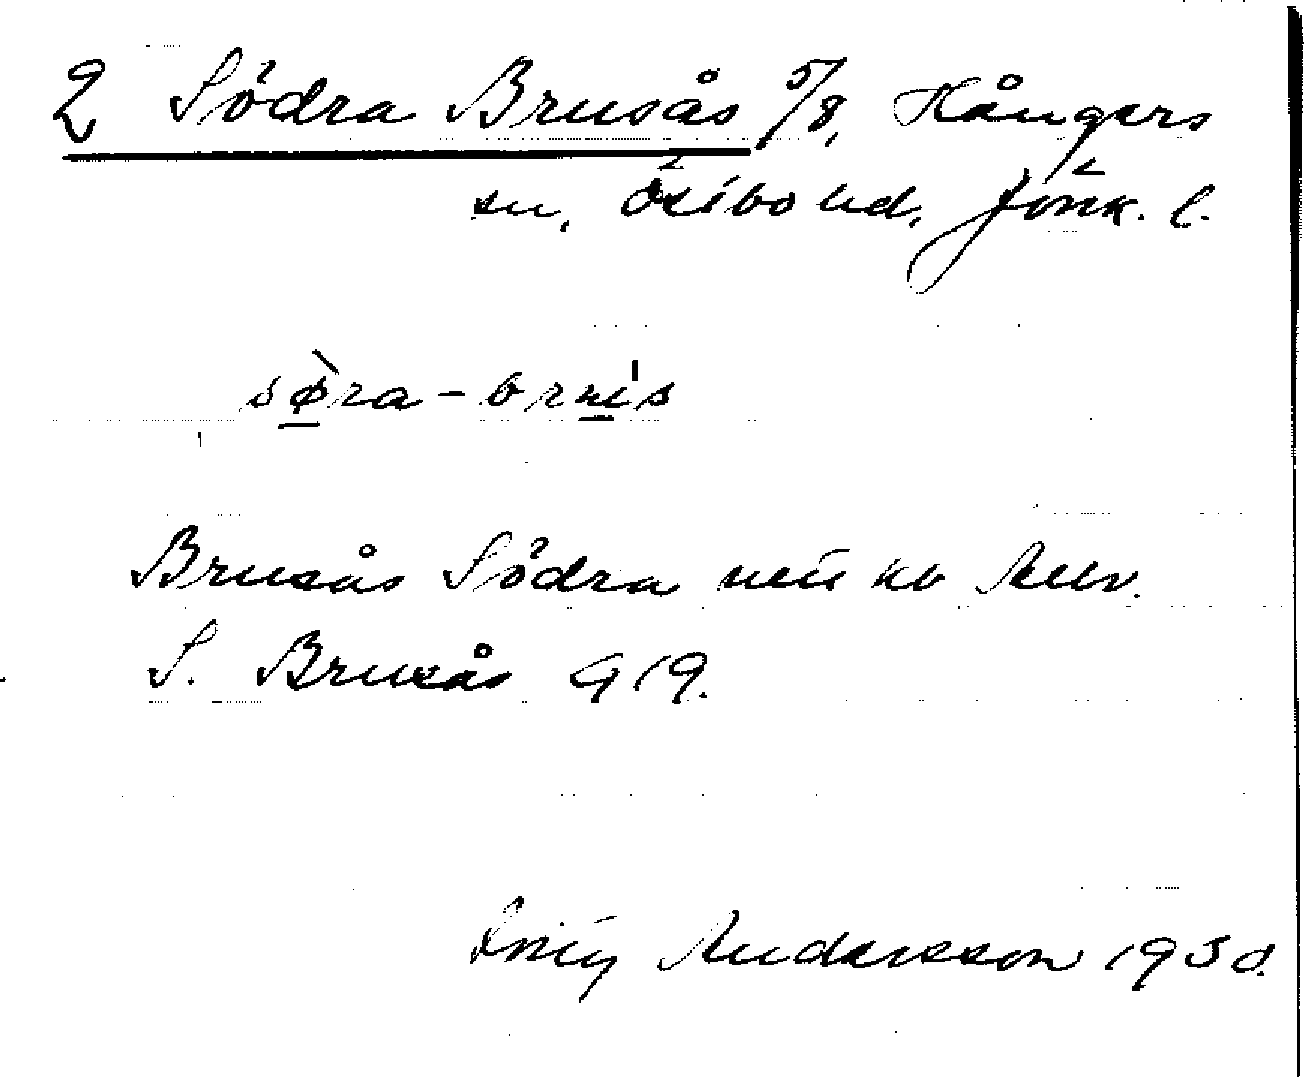 2 Södra Brusås 5/8, Kångers
sn, Östbo hd, Jönk. l.
sø̀ra-brúis
Brusås Södra
S. Brusås G 19.
Andersson 1930